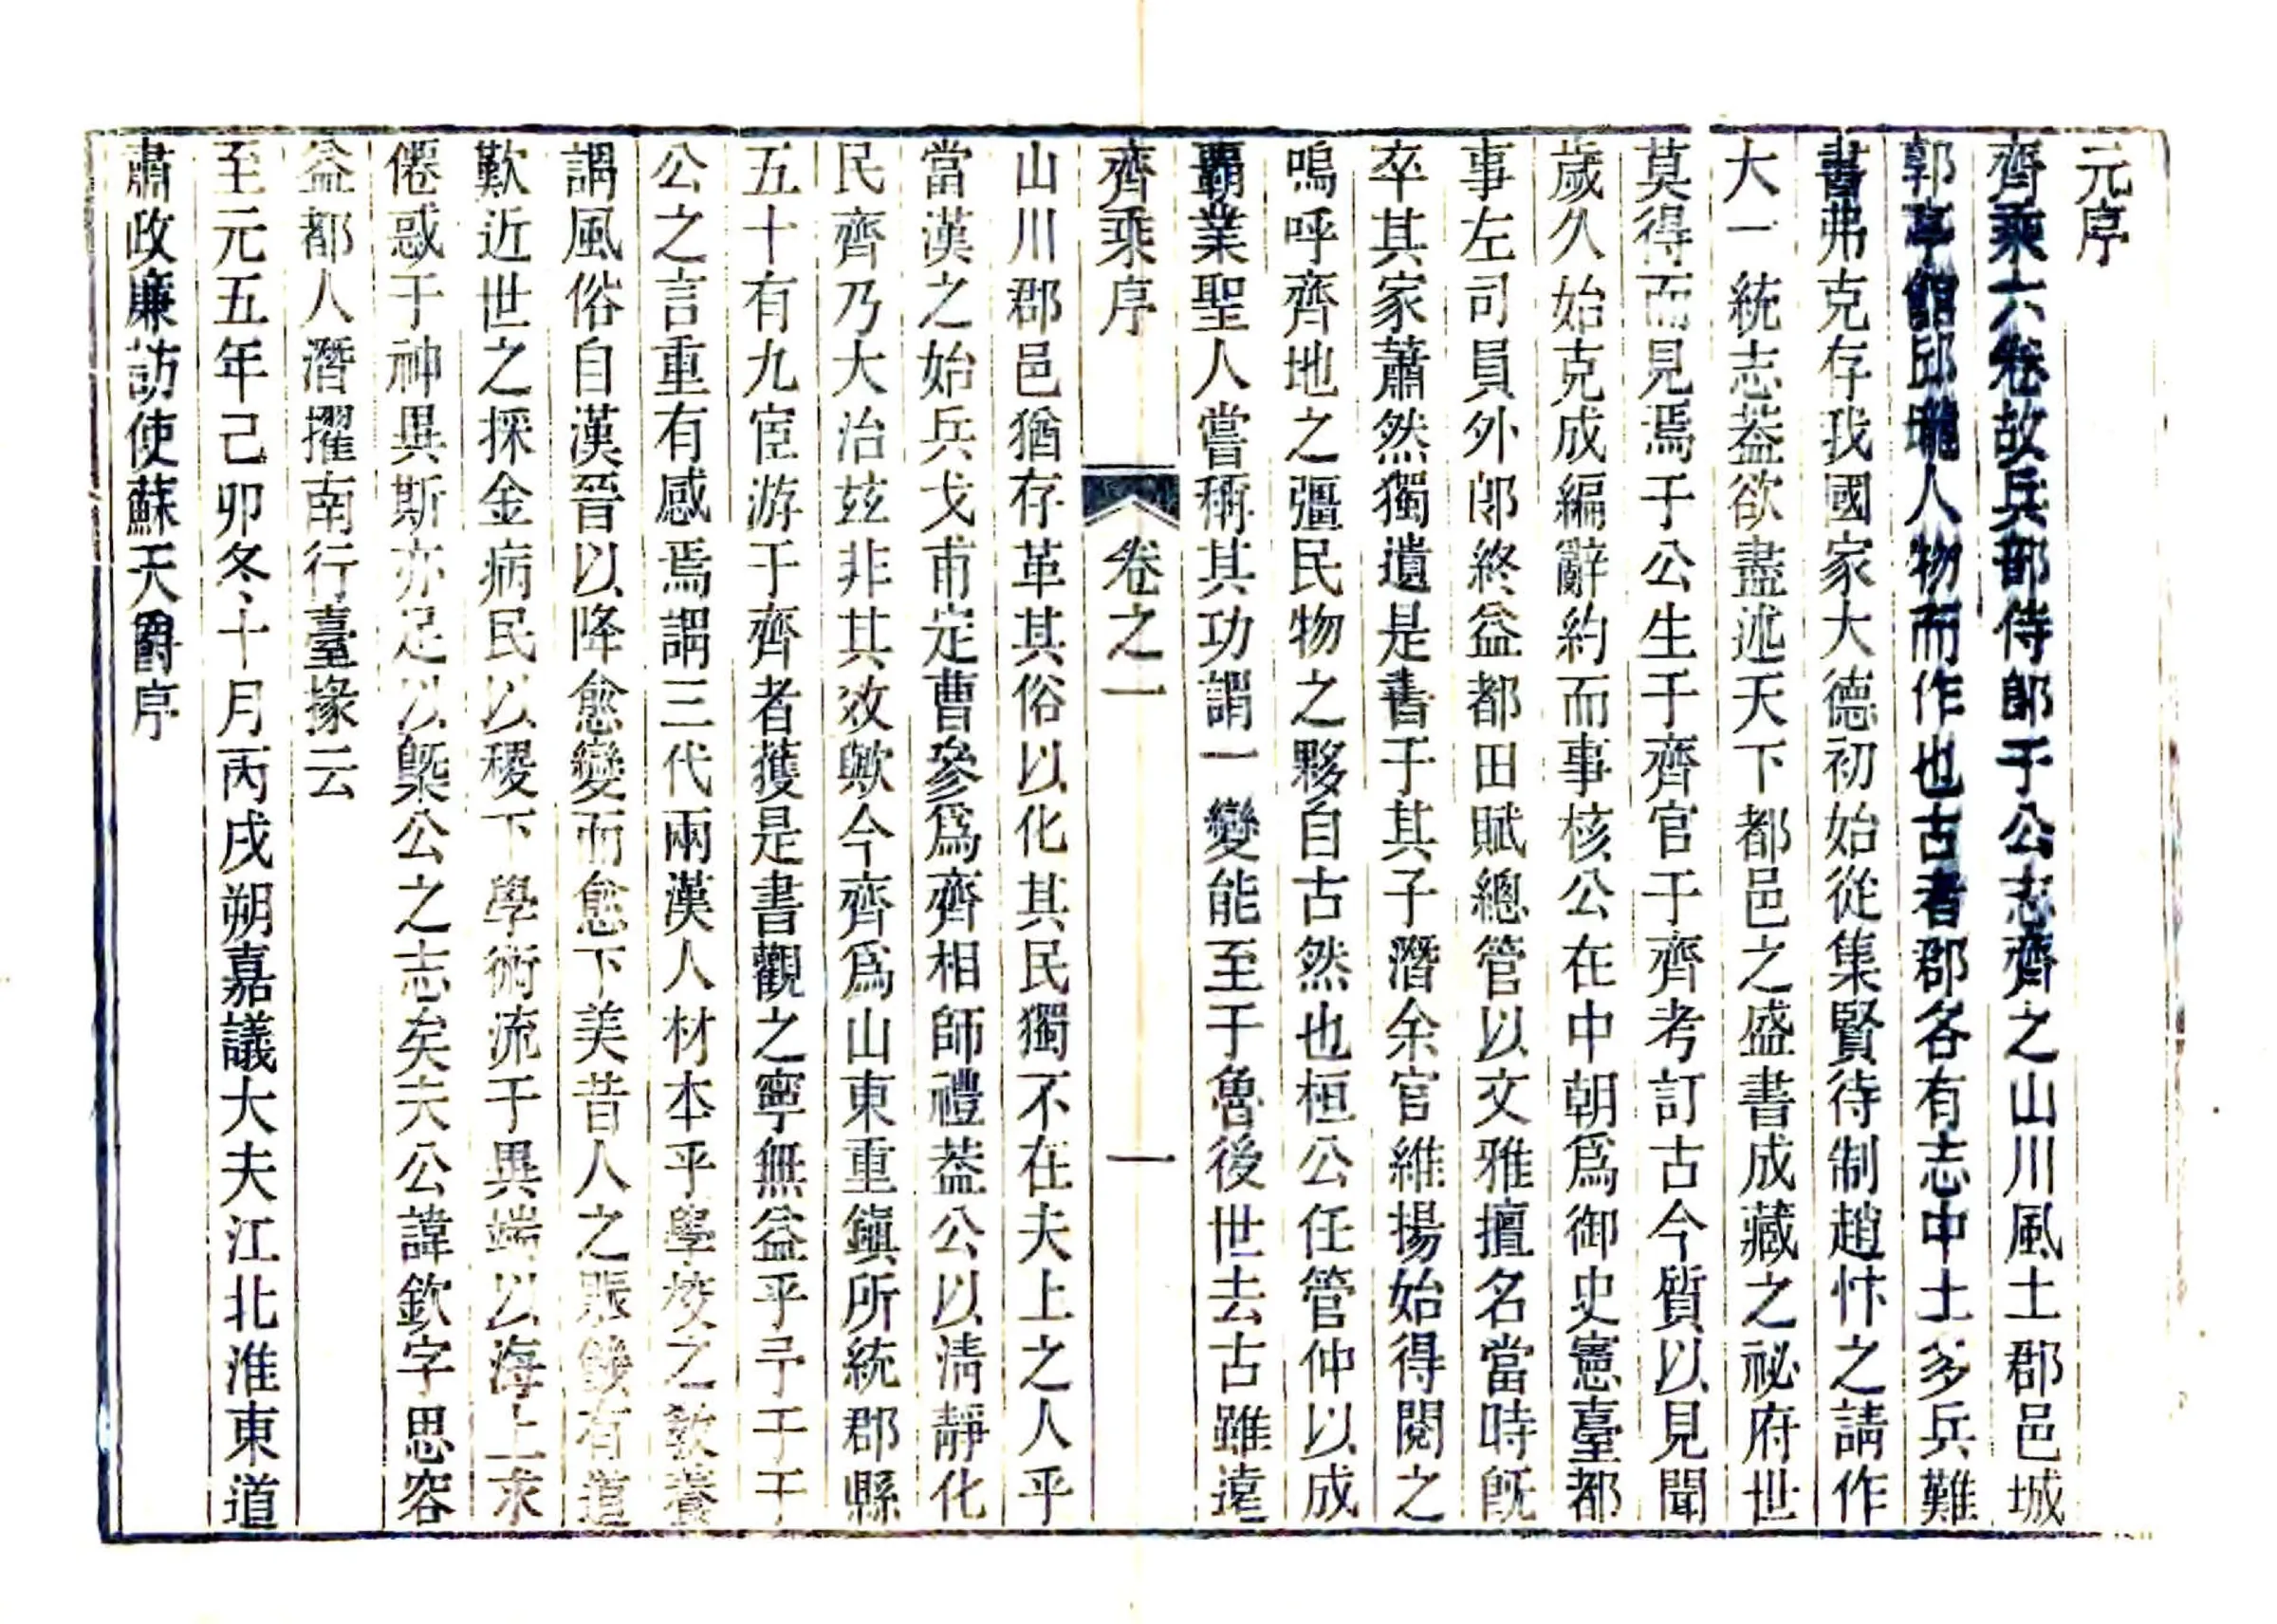 元序
齊乘六卷故兵部侍郎于公志齊之山川風土郡邑城
郭亭館邱壠人物而作也古者郡各有志中土多兵難
書弗克存我國家大德初始從集賢待制趙忭之請作
大一統志葢欲盡述天下都邑之盛書成藏之祕府世
莫得而見焉于公生于齊官于齊考訂古今質以見聞
歲久始克成編辭約而事核公在中朝爲御史憲臺都
事左司員外郎終益都田賦總管以文雅擅名當時旣
卒其家蕭然獨遺是書于其子潛余官維揚始得閱之
嗚呼齊地之疆民物之夥自古然也桓公任管仲以成
霸業聖人嘗稱其功謂一變能至于魯後世去古雖遠
齊乘序 卷之一 一
山川郡邑猶存革其俗以化其民獨不在夫上之人乎
當漢之始兵戈甫定曹參爲齊相師禮葢公以清靜化
民齊乃大治玆非其效歟今齊爲山東重鎭所統郡縣
五十有九宦游于齊者獲是書觀之寧無益乎予于于
公之言重有感焉謂三代兩漢人材本乎學校之敎養
謂風俗自漢晉以降愈變而愈下美昔人之賑饑有道
歎近世之採金病民以稷下學術流于異端以海上求
僊惑于神異斯亦足以槩公之志矣夫公諱欽字思容
益都人潛擢南行臺掾云
至元五年己卯冬十月丙戌朔嘉議大夫江北淮東道
肅政廉訪使蘇天爵序